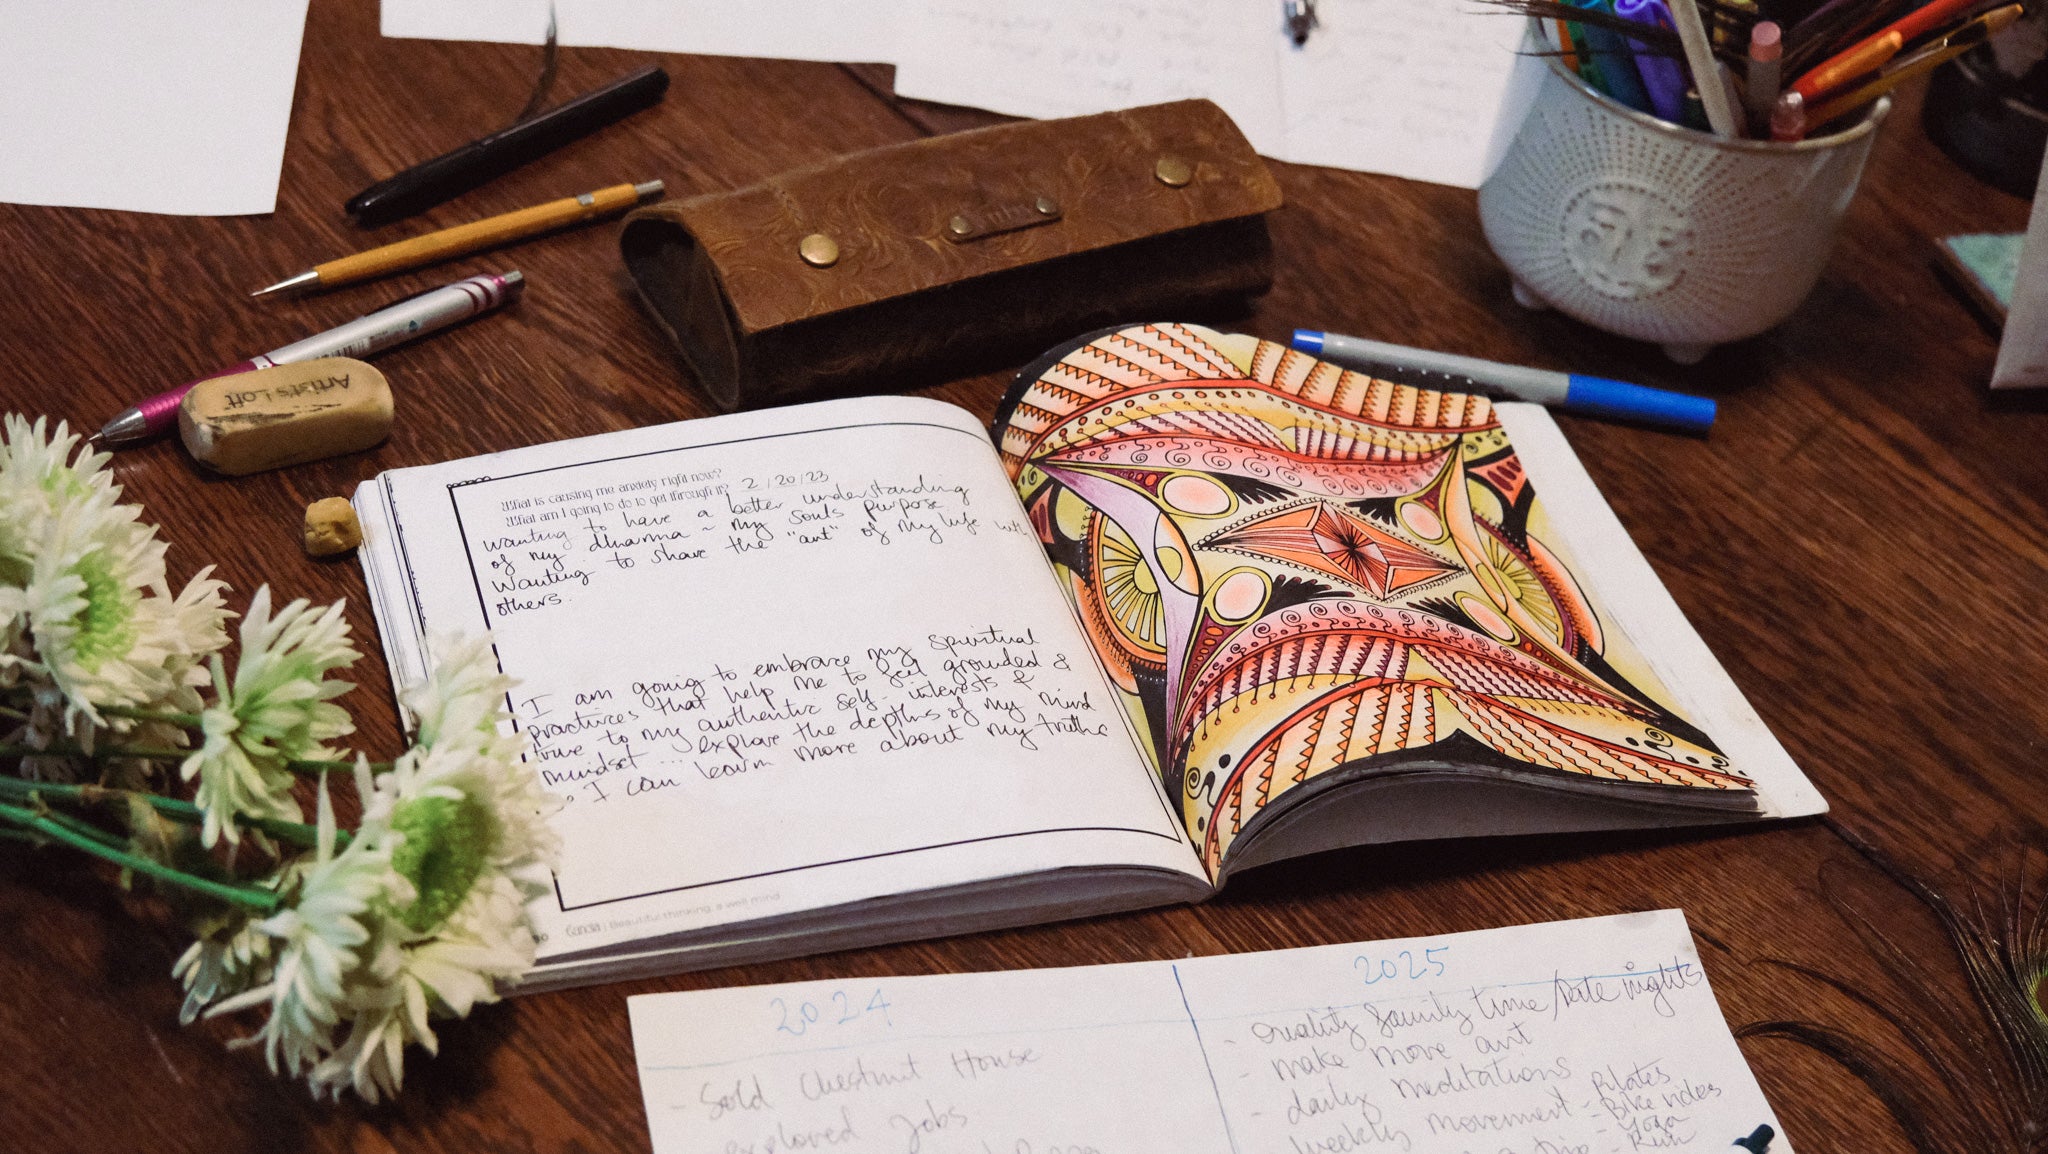 Artist's Loft
What is causing me anxiety right now?
What am I going to do to get through it? 2/20/23
Wanting to have a better understanding
of my dharma ~ my souls purpose.
Wanting to share the "art" of my life with
others.
I am going to embrace my spiritual
practices that help me to feel grounded &
true to my authentic self - interests &
mindset ... explore the depths of my mind
so I can learn more about my truths
Beautiful thinking, a well mind
2024
- Sold Chestnut House
explored jobs
2025
- Quality family time / date nights
- make more art
- daily meditations
weekly movement - Pilates
- Bike rides
- Yoga
- Run